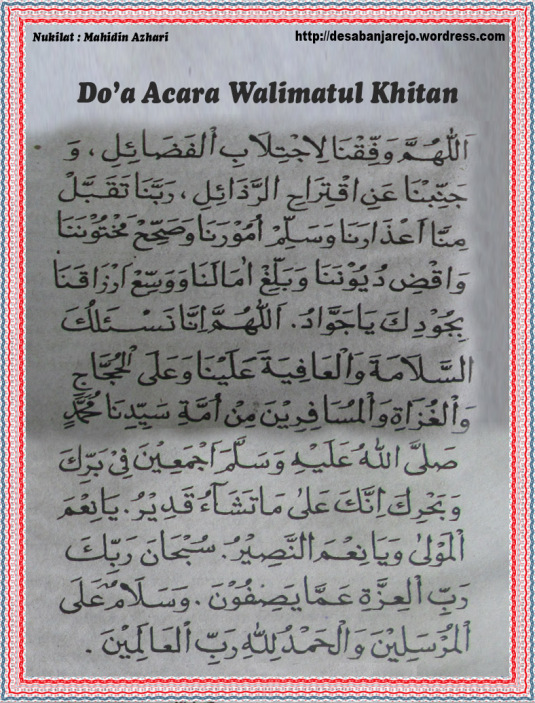 Nukilat : Mahidin Azhari
http://desabanjarejo.wordpress.com
Do'a Acara Walimatul Khitan
اَللّٰهُمَّ وَفِّقْنَا لِاجْتِلَابِ الْفَضَائِلِ ، وَ
جَنِّبْنَا عَنِ اقْتِرَاحِ الرَّذَائِلِ ، رَبَّنَا تَقَبَّلْ
مِنَّا اَعْذَارَنَا وَسَلِّمْ اُمُوْرَنَا وَصَحِّحْ مَخْتُوْنَنَا
وَاقْضِ دُيُوْنَنَا وَبَلِّغْ اٰمَالَنَا وَوَسِّعْ اَرْزَاقَنَا
بِجُوْدِكَ يَاجَوَّادُ. اَللّٰهُمَّ اِنَّا نَسْئَلُكَ
السَّلَامَةَ وَالْعَافِيَةَ عَلَيْنَا وَعَلَى الْحُجَّاجِ
وَالْغُزَاةِ وَالْمُسَافِرِيْنَ مِنْ اُمَّةِ سَيِّدِنَا مُحَمَّدٍ
صَلَّى اللّٰهُ عَلَيْهِ وَسَلَّمَ اَجْمَعِيْنَ فِيْ بَرِّكَ
وَبَحْرِكَ اِنَّكَ عَلٰى مَا تَشَآءُ قَدِيْرُ. يَانِعْمَ
الْمَوْلٰى وَيَانِعْمَ النَّصِيْرُ. سُبْحَانَ رَبِّكَ
رَبِّ الْعِزَّةِ عَمَّا يَصِفُوْنَ . وَسَلَامٌ عَلَى
الْمُرْسَلِيْنَ وَالْحَمْدُ لِلّٰهِ رَبِّ الْعَالَمِيْنَ .